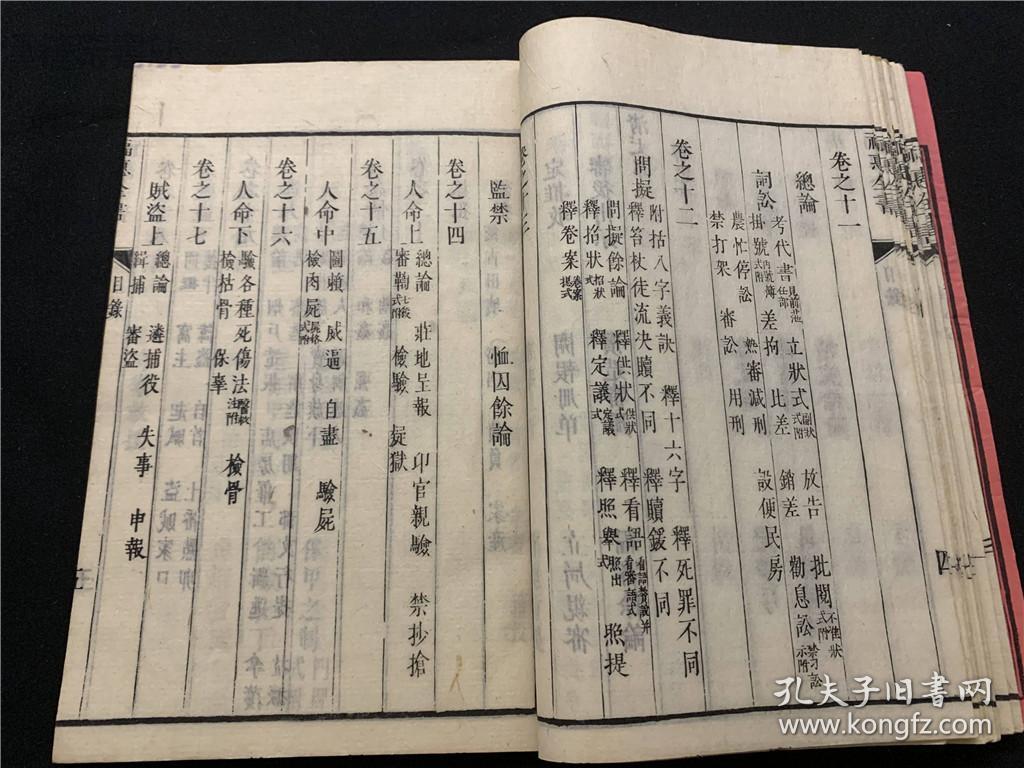 卷之十一
總論
考代書 立狀式 放告 批閱
詞訟
掛號 差拘 比差 銷差 勸息訟
農忙停訟 熱審減刑 設便民房
禁打架 審訟 用刑
卷之十二
問擬
附括八字義訣 釋十六字 釋死罪不同
釋笞杖徒流決贖不同 釋贖鍰不同
問擬餘論 釋供狀供狀式 釋看語
釋招狀招狀式 釋定議定議式 釋照舉 照提
釋卷案
監禁 恤囚餘論
卷之十四
人命上
總論 莊地呈報 印官親驗 禁抄搶
審勘 檢驗 屍獄
卷之十五
人命中
圖賴 威逼 自盡 驗屍
檢肉屍
卷之十六
人命下
驗各種死傷法 檢骨
檢枯骨 保辜
卷之十七
賊盜上
總論 遴捕役 失事 申報
緝捕 審盜
福惠全書 目錄 三
孔夫子旧书网
www.kongfz.com